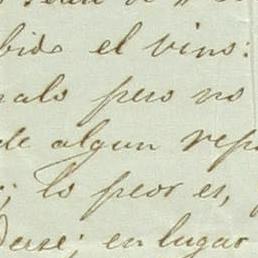 bido el vino:
malo pero no
de algun repo
; lo peor es,
derse; en lugar